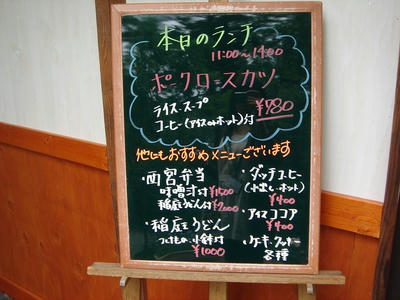 本日のランチ
11:00〜14:00
ポークロースカツ
ライス.スープ
コーヒー(アイスorホット)付
¥780
他にもおすすめメニューございます
・西宮弁当
味噌汁付¥1500
稲庭うどん付¥2000
・稲庭うどん
つけもの.小鉢付
¥1000
・ダッチコーヒー
(水出し・ホット)
¥400
・アイスココア
¥400
・ケーキ.クッキー
各種